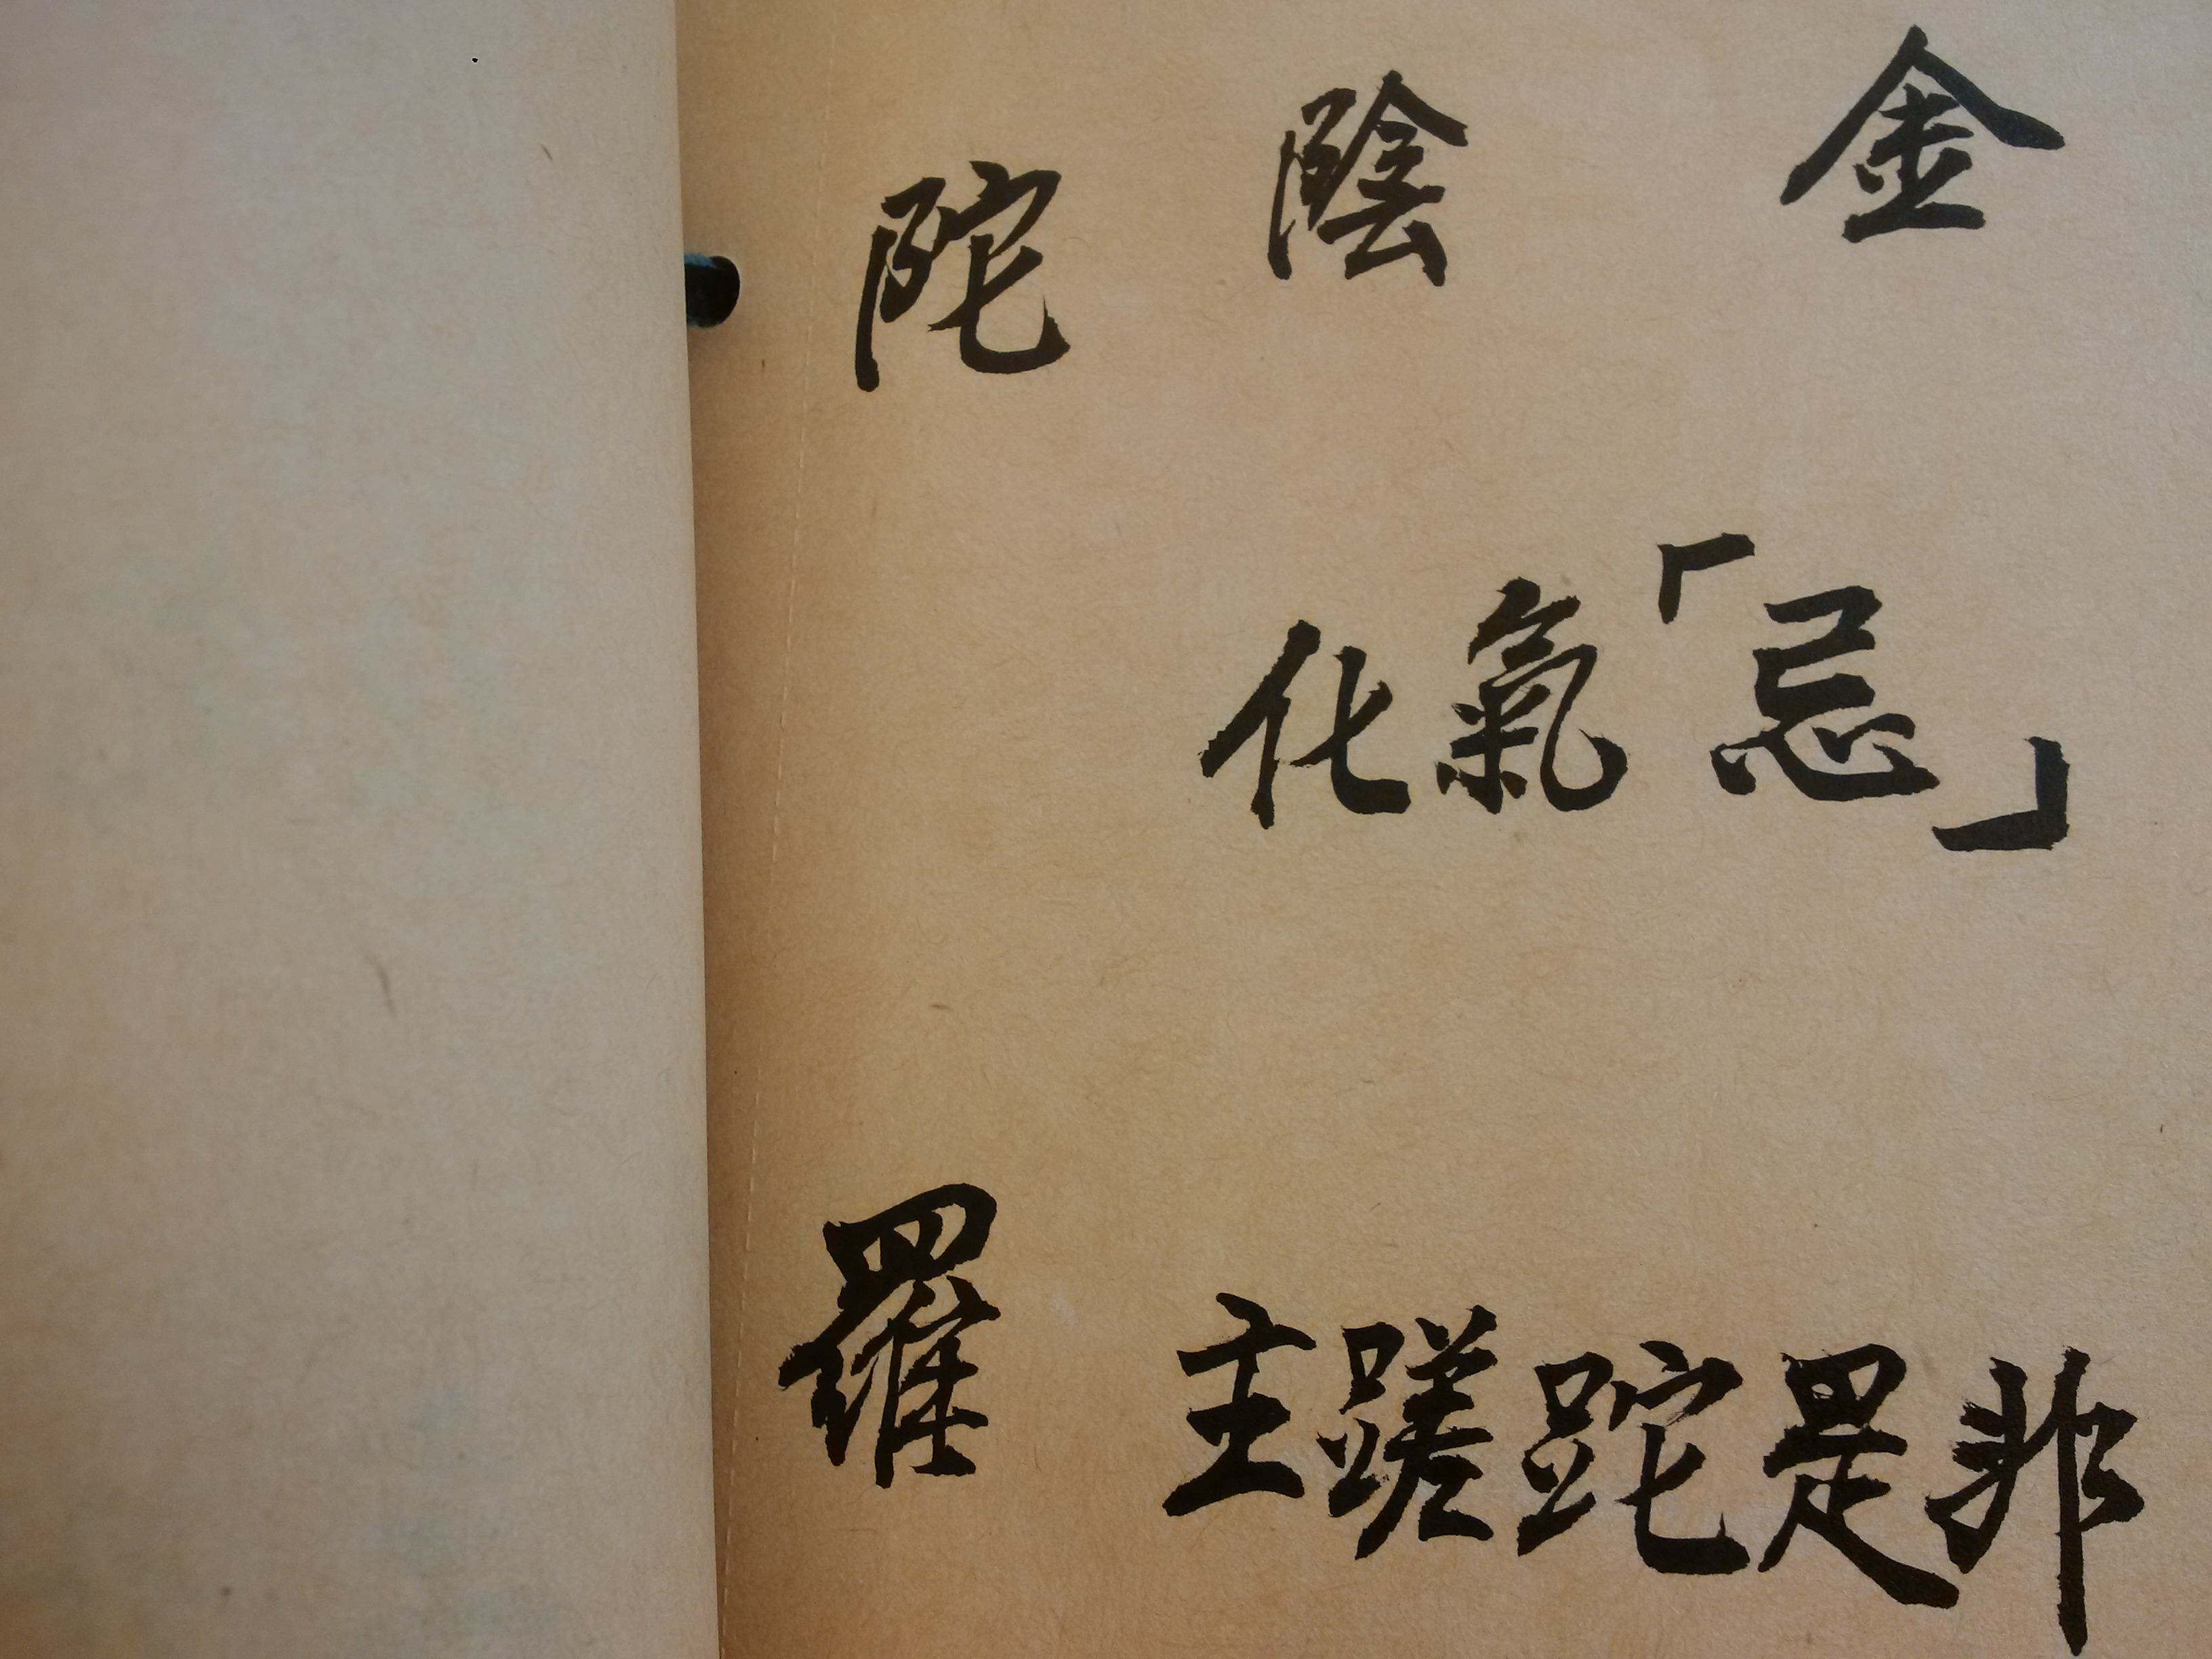 陀 陰 金
化氣「忌」
羅 主蹉跎是非